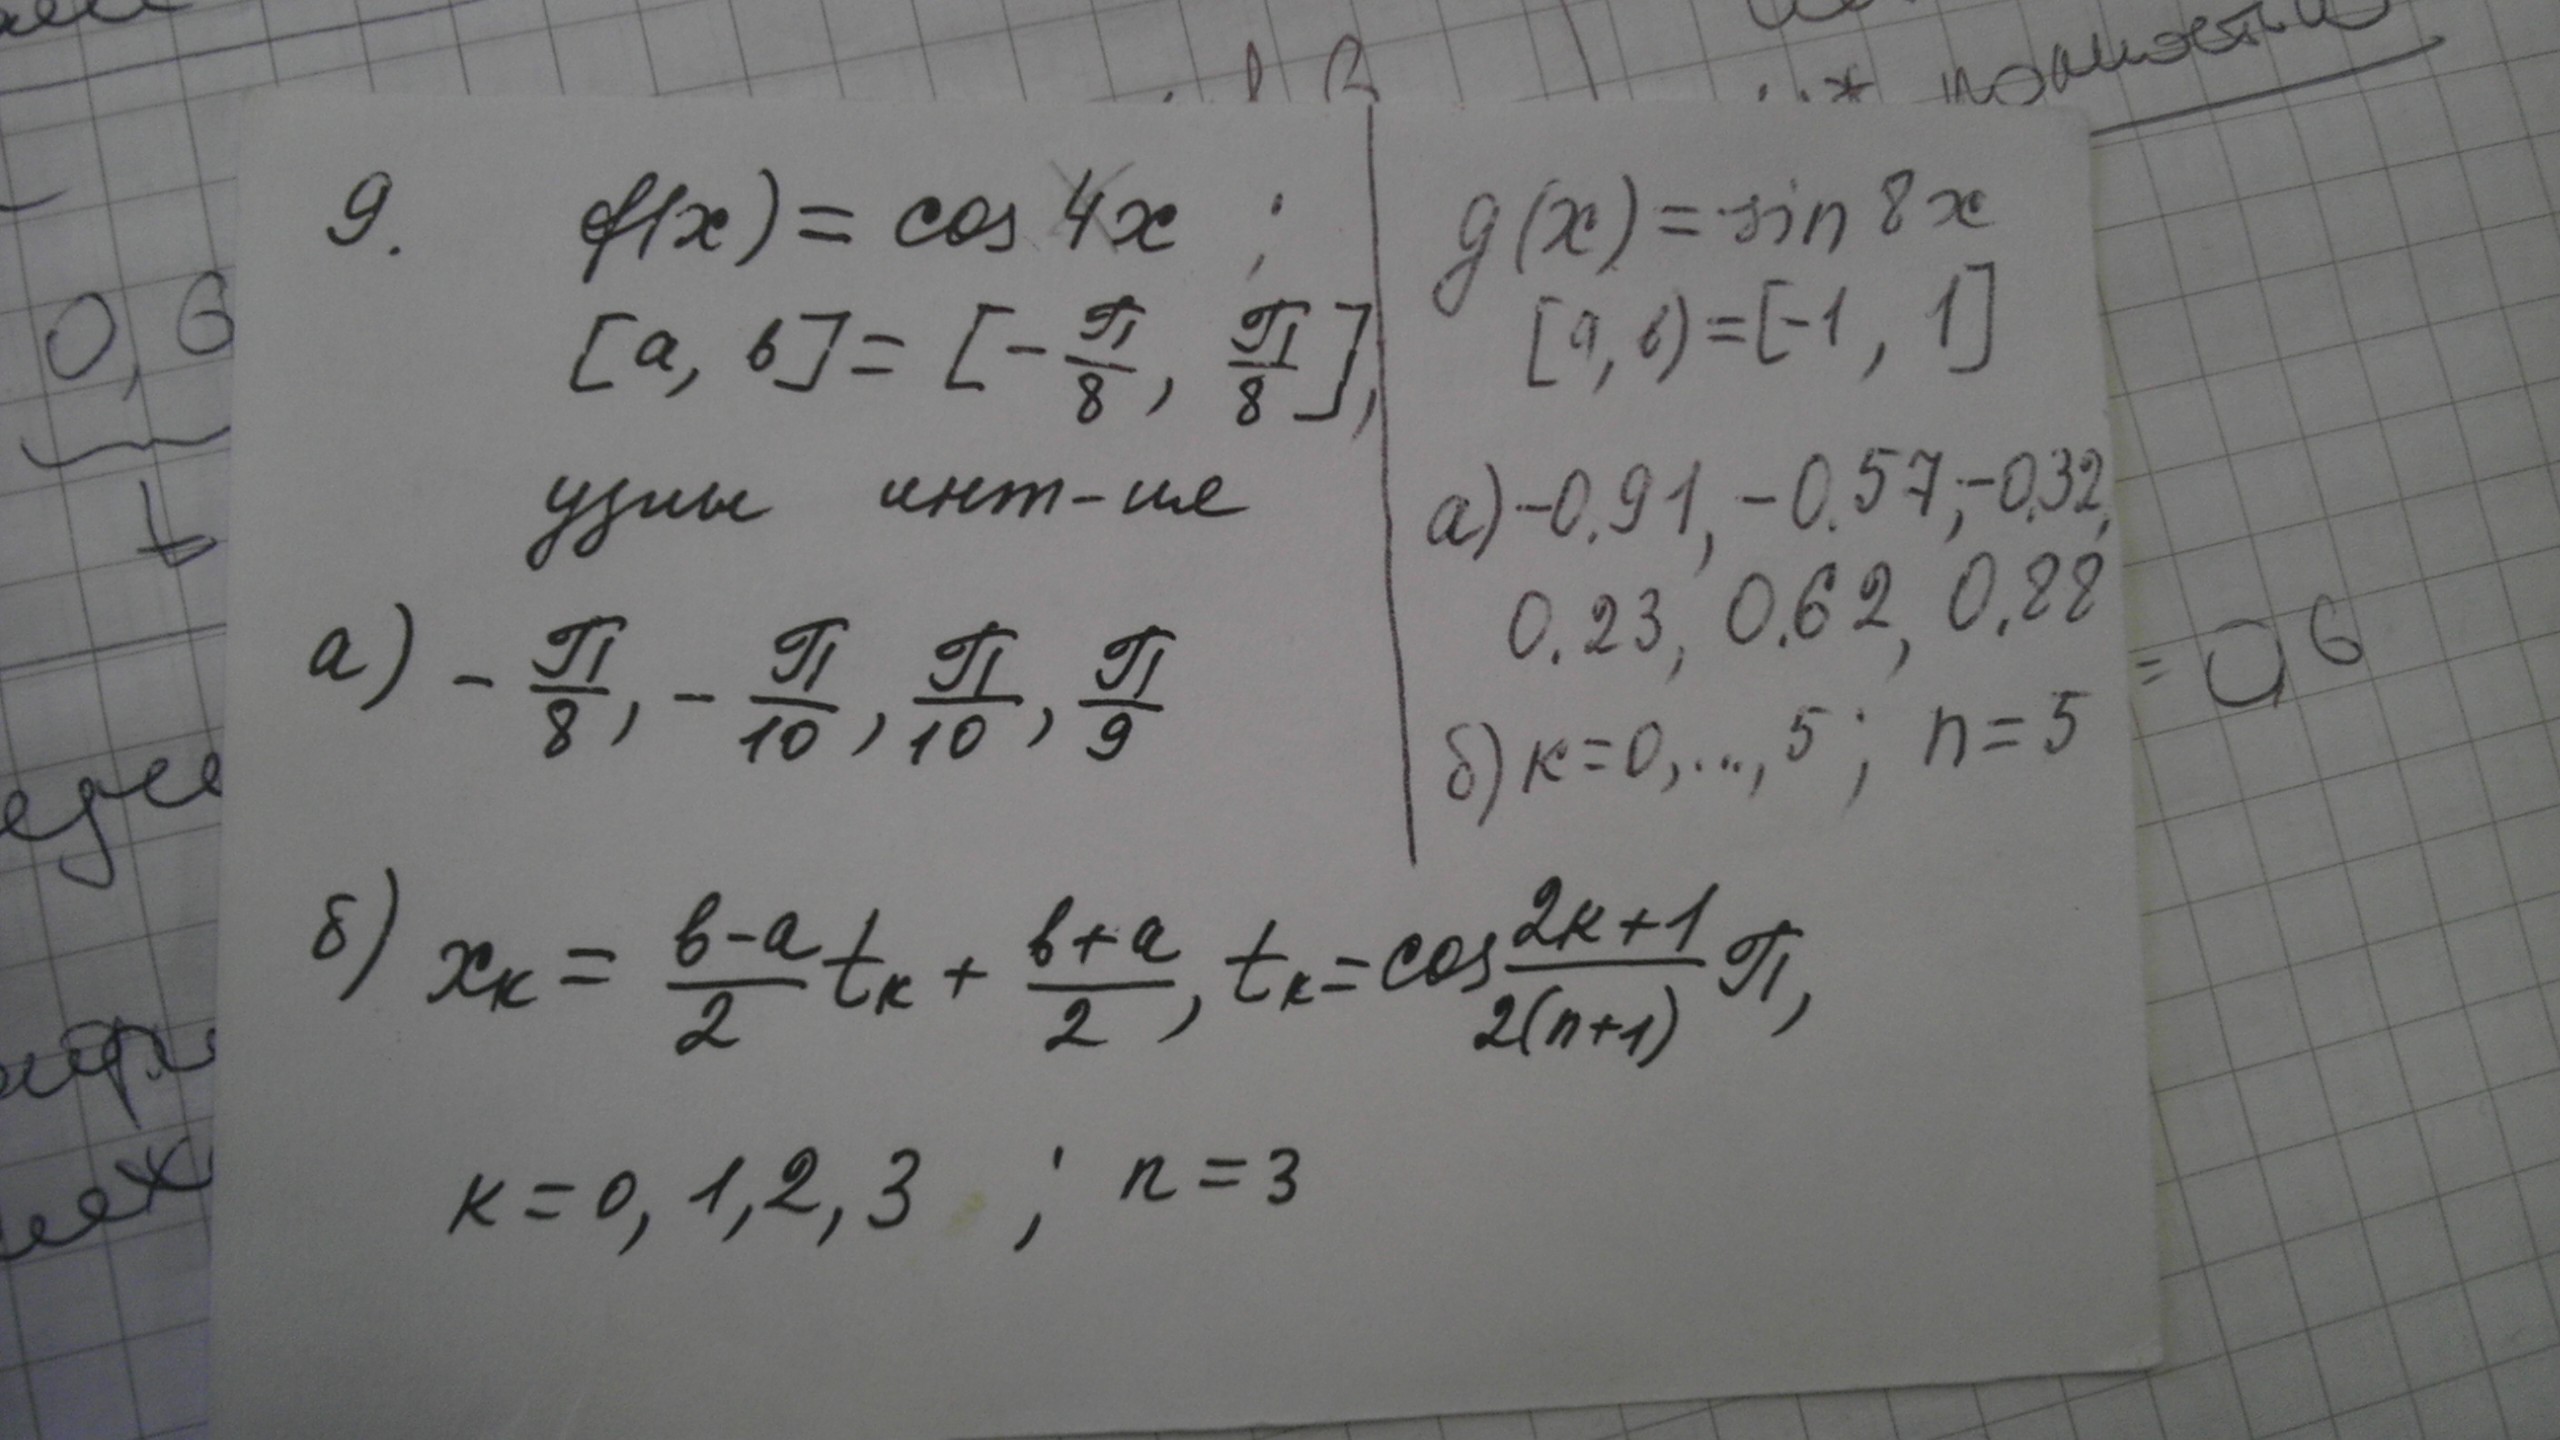 9. f(x) = cos 4x ;
[a, в] = [-π/8, π/8],
узлы инт-ие
а) -π/8, -π/10, π/10, π/9
g(x) = sin 8x
[a, в) = [-1, 1]
а) -0.91, -0.57, -0.32,
0.23, 0.62, 0.88
б) к=0,...,5; n=5
б) xк = (в-a)/2 tк + (в+a)/2, tк = cos (2к+1)/(2(n+1)) π,
к = 0, 1, 2, 3 ; n = 3
0,6
= 0,6